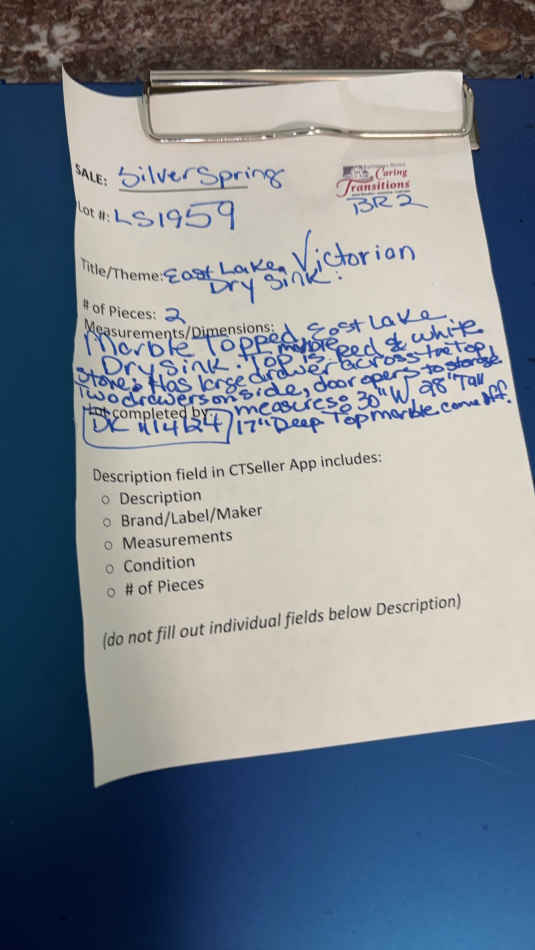 SALE: Silver Spring
Caring
Transitions
BR2
Lot #: LS1959
Title/Theme: East Lake Victorian
Dry Sink.
# of Pieces: 2
Measurements/Dimensions:
Marble Topped East Lake
Dry Sink. Top is red & white marble
stone. Has large drawer across the top,
Two drawers on side, door opens to storage
Lot completed by: measures: 30" W 28" Tall
DK 11/4/24 17" Deep Top marble come off.
Description field in CTSeller App includes:
○ Description
○ Brand/Label/Maker
○ Measurements
○ Condition
○ # of Pieces
(do not fill out individual fields below Description)